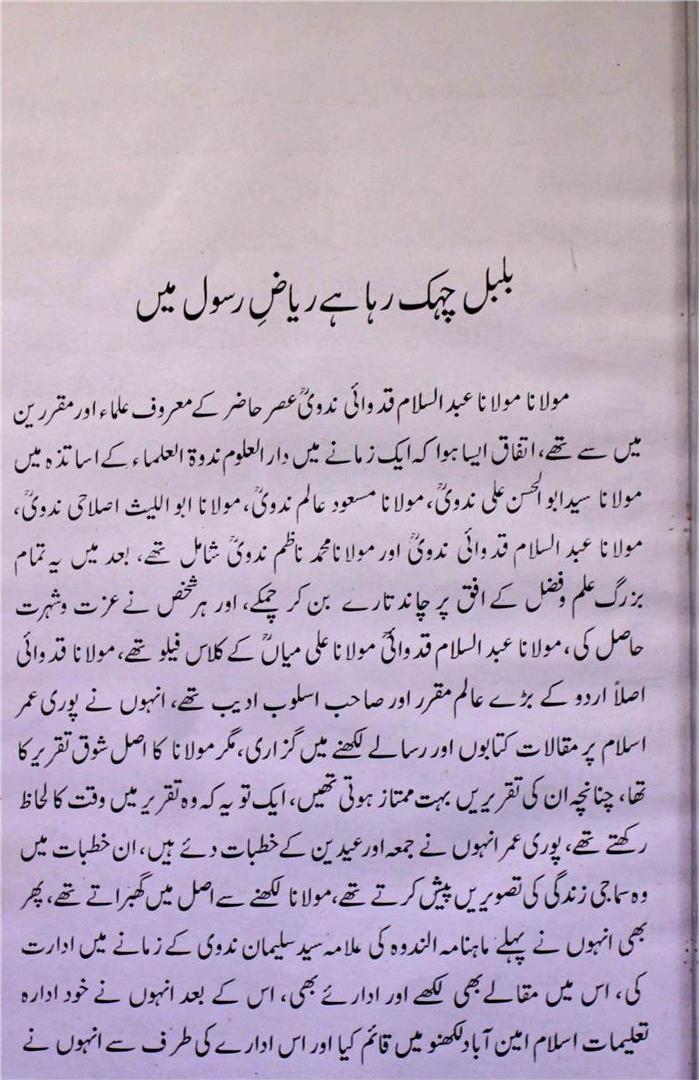 بلبل چہک رہا ہے ریاضِ رسول میں
مولانا مولانا عبد السلام قدوائی ندویؒ عصر حاضر کے معروف علماء اور مقررین
میں سے تھے، اتفاق ایسا ہوا کہ ایک زمانے میں دار العلوم ندوۃ العلماء کے اساتذہ میں
مولانا سید ابو الحسن علی ندویؒ، مولانا مسعود عالم ندویؒ، مولانا ابو اللیث اصلاحی ندویؒ،
مولانا عبد السلام قدوائی ندویؒ اور مولانا محمد ناظم ندویؒ شامل تھے، بعد میں یہ تمام
بزرگ علم وفضل کے افق پر چاند تارے بن کر چمکے، اور ہر شخص نے عزت وشہرت
حاصل کی، مولانا عبد السلام قدوائیؒ مولانا علی میاںؒ کے کلاس فیلو تھے، مولانا قدوائی
اصلاً اردو کے بڑے عالم مقرر اور صاحب اسلوب ادیب تھے، انہوں نے پوری عمر
اسلام پر مقالات کتابوں اور رسالے لکھنے میں گزاری، مگر مولانا کا اصل شوق تقریر کا
تھا، چنانچہ ان کی تقریریں بہت ممتاز ہوتی تھیں، ایک تو یہ کہ وہ تقریر میں وقت کا لحاظ
رکھتے تھے، پوری عمر انہوں نے جمعہ اور عیدین کے خطبات دئے ہیں، ان خطبات میں
وہ سماجی زندگی کی تصویریں پیش کرتے تھے، مولانا لکھنے سے اصل میں گھبراتے تھے، پھر
بھی انہوں نے پہلے ماہنامہ الندوہ کی علامہ سید سلیمان ندوی کے زمانے میں ادارت
کی، اس میں مقالے بھی لکھے اور ادارئے بھی، اس کے بعد انہوں نے خود ادارہ
تعلیمات اسلام امین آباد لکھنو میں قائم کیا اور اس ادارے کی طرف سے انہوں نے